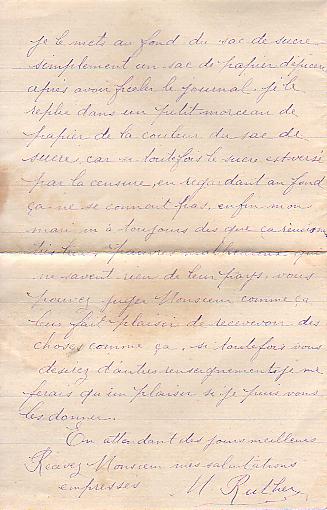 je le mets au fond du sac de sucre
simplement un sac de papier d'épicerie
après avoir ficeler le journal je le
replie dans un petit morceau de
papier de la couleur du sac de
sucre, car si toutefois le sucre est versé
par la censure, en regardant au fond
ça ne se connait pas, enfin mon
mari m'a toujours dis que ca réussi
très bien pauvres malheureux qui
ne savent rien de leur pays, vous
pouvez juger Monsieur comme ça
leur fait plaisir de recevoir des
choses comme ça, si toutefois vous
désirez d'autres renseignements je me
ferais qu'un plaisir si je puis vous
les donner.
En attendant des jours meilleurs
Recevez Monsieur mes salutations
empresses M. Ruther